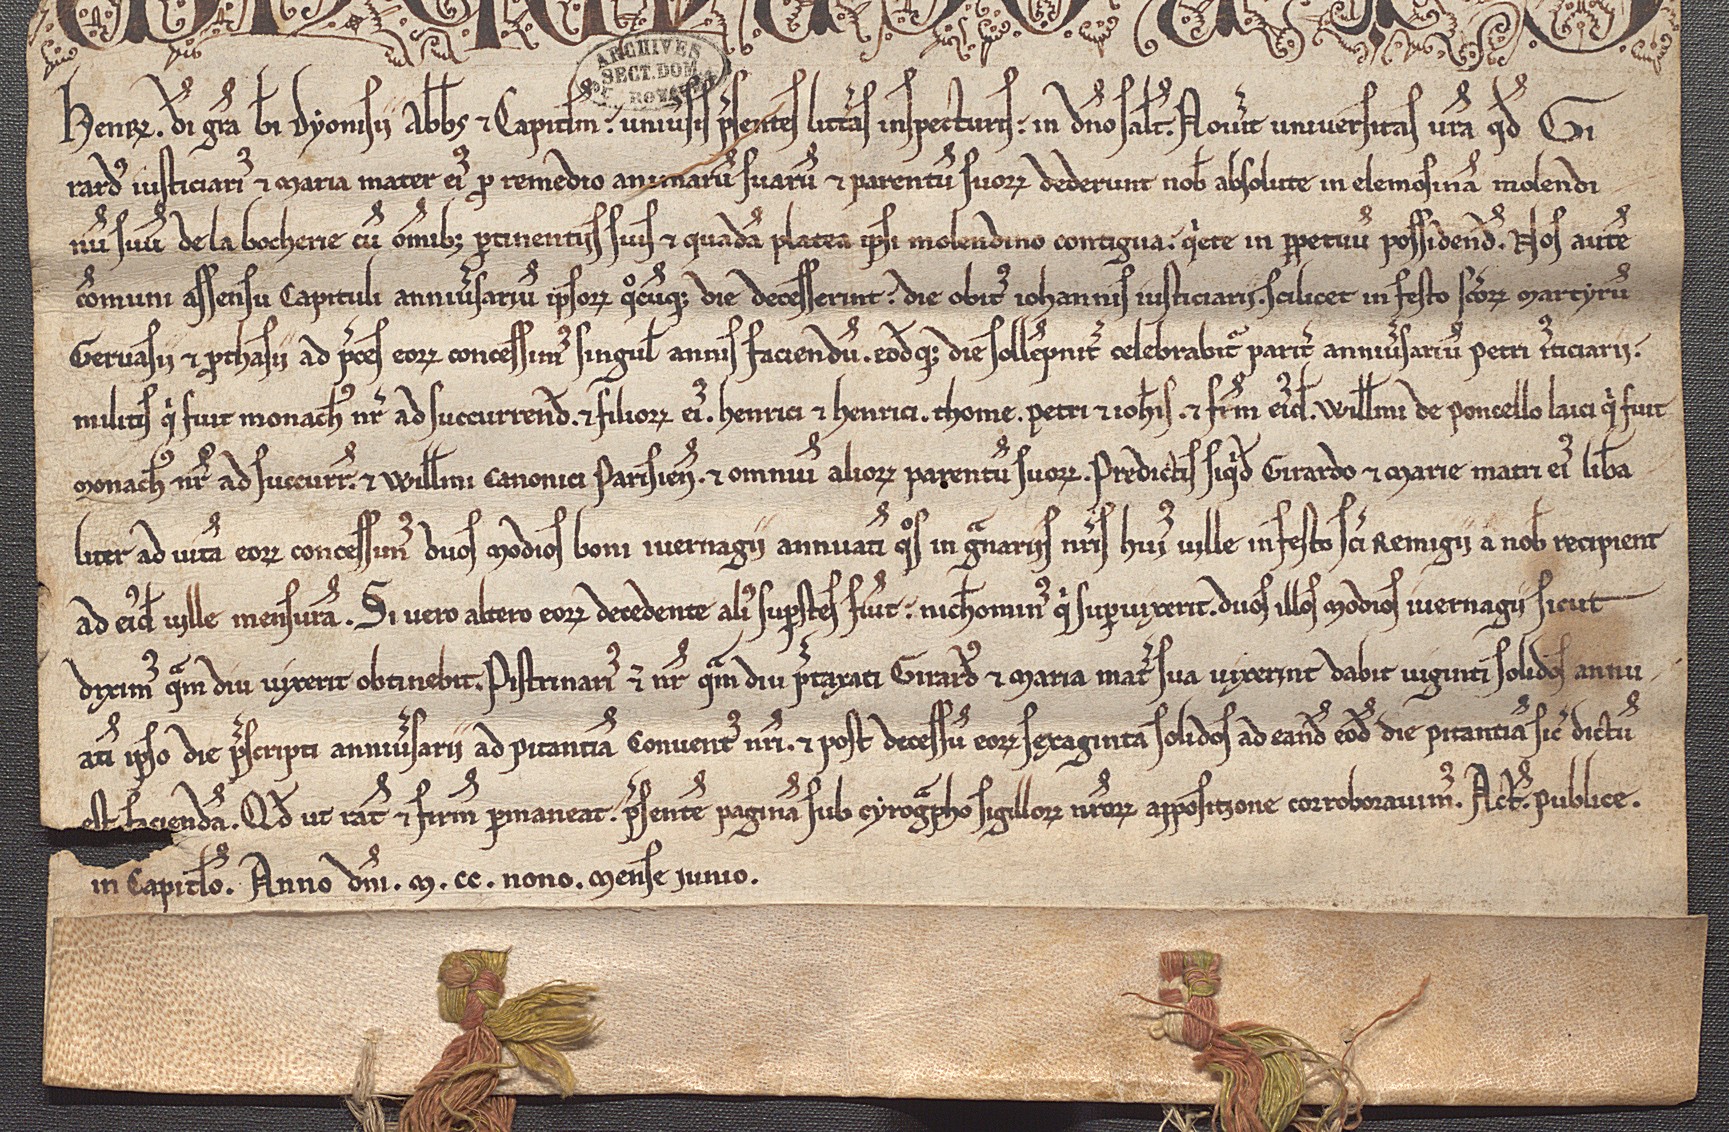 ARCHIVES
SECT. DOM.
ROYAUME
Henꝝ. dī gr̄a bī Dyonisii Abb̄s ⁊ Capitlm̄: univ̾sis p̄sentes litt̾as inspecturis: in dn̄o salt̄. Nov̾it universitas ur̄a qd̄ Gi
rard̾ iusticiari᾽ ⁊ Maria mater ei᾽ ꝓ remedio animarū suarū ⁊ parentū suoꝝ dederunt nob̄ absolute in elemosinā molendi
nū suū de la bocherie cū om̄ib; ꝑtinentiis suis ⁊ quadā platea ipsi molendino contigua: qⁱete in ꝑpetuū possidend̄. Nos autē
cōmuni assensu Capituli anniv̾sariū ipsoꝝ qͦcūq; die decesserint: die obit᾽ iohannis iusticiarii. scilicet in festo sc̄oꝝ Martyrū
Gervasii ⁊ ꝓthasii ad p̄ces eoꝝ concessim᾽ singul̄ annis faciendū. eodq; die sollēpnit̾ celebrabit̾ parit̾ anniv̾sariū Petri iꝰticiarii:
militis qⁱ fuit monach᾽ nr̄ ad succurrend̄. ⁊ filioꝝ ei᾽. henrici ⁊ henrici. thome. petri ⁊ ioh̄is. ⁊ fr̄m ei᾽d̄. Will̄mi de Poncello laici qⁱ fuit
monach᾽ nr̄ ad succurr̄. ⁊ Will̄mi canonici Parisien̄. ⁊ omniū alioꝝ parentū suoꝝ. Predictis siqⁱd̄ Girardo ⁊ Marie matri ei᾽ lib̾a
liter ad vitā eoꝝ concessim᾽ duos modios boni ivernagii annuatī qͦs in gᵃnariis nr̄is hui᾽ ville in festo sc̄i Remigii a nob̄ recipient
ad ei᾽d̄ ville mensurā. Si vero altero eoꝝ decedente ali᾽ suꝑstes fu̾it: nich̄omin᾽ qⁱ suꝑvixerit. duos illos modios ivernagii sicut
dixim᾽ qᵃm diu vixerit obtinebit. Pistrinari᾽ ⁊ nr̄ qᵃm diu p̄taxati Girard̾ ⁊ Maria mat̾ sua vixerint dabit viginti solidos annu
atī ipso die p̄scripti anniv̾sarii ad pitantiā Convent᾽ nr̄i. ⁊ post decessū eoꝝ sexaginta solidos ad eand̄ eod̄ die pitantiā sic̄ dictū
est faciendā. Qd̄ ut rat̄ ⁊ firm̄ ꝑmaneat: p̄sentē paginā sub cyrogᵃpho sigilloꝝ nr̄oꝝ appositione corroboravim᾽. Act̄. publice.
in Capitl̄o. Anno dn̄i. M. cc. nono. Mense Junio.